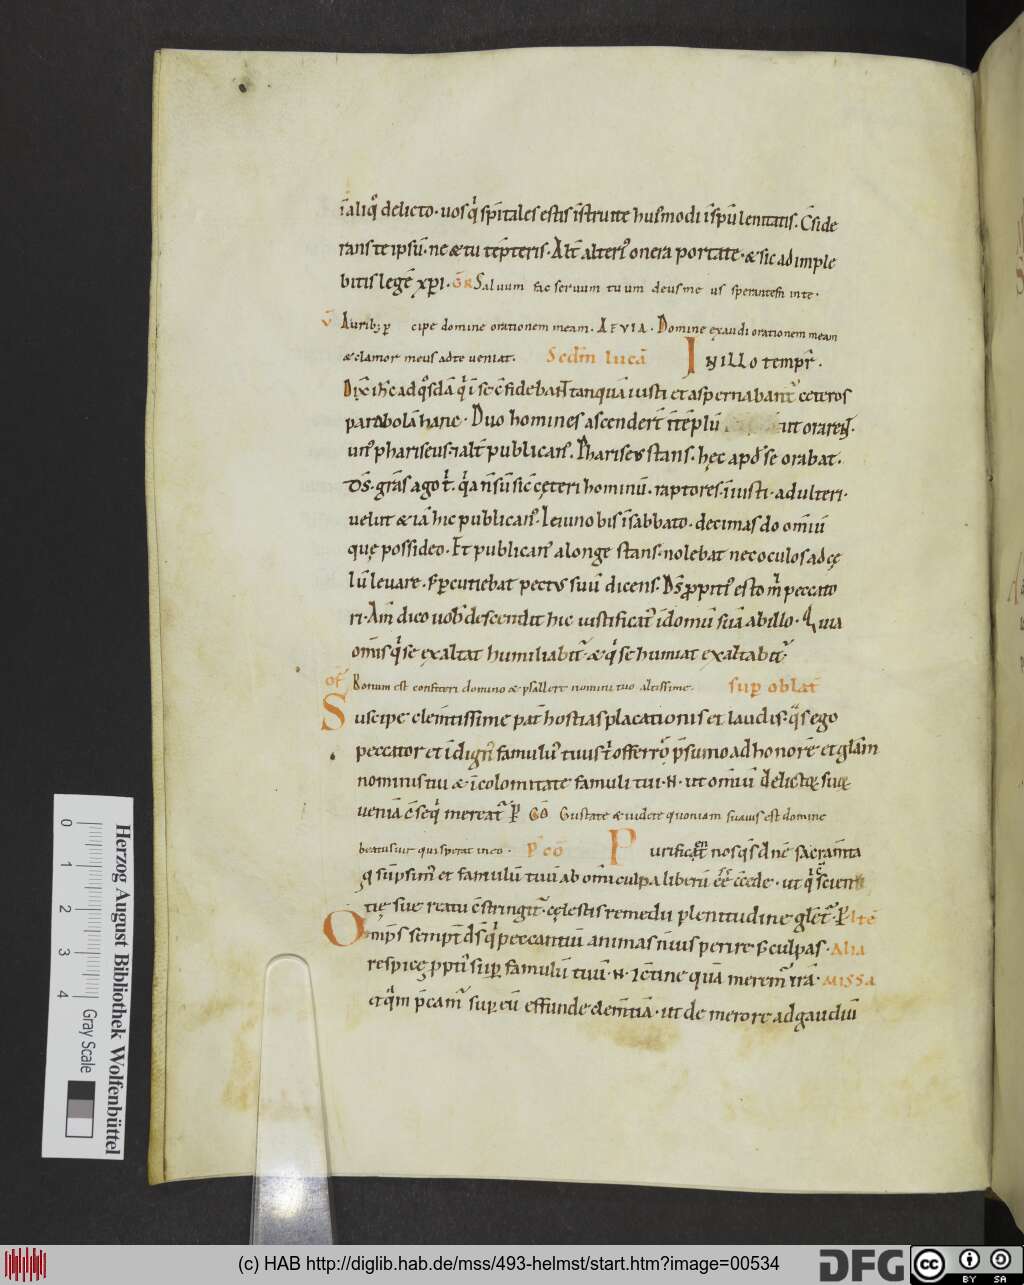 īaliq° delicto. uos q̄ sp̄itales estis īstruite hui᷒modi ī sp̄u lenitatis. C̄side
rans te ipsū. ne & tu tēpteris. Alt̄ alteri᷒ onera portate. & sic adimple
bitis legē xp̄i. GR Saluum fac seruum tuum deus me us sperantem in te.
V Aurib; p cipe domine orationem meam. AEVIA. Domine exaudi orationem meam
& clamor meus ad te ueniat. Scdm̄ lucā IN ILLO tempr̄.
Dix̄ ih̄c ad q°sdā q̄ ī se c̄fidebant tanquā iusti et aspernabant᷒ ceteros
parabolā hanc. Duo homines ascendert̄ ī tēplū ut orarent.
un᷒ phariseus. & alt̄ publican᷒. Phariseus stans. hęc apd̄ se orabat.
D̄s. grās ago t̄. q̄a n̄ sū sic cęteri hominū. raptores. īiusti. adulteri.
uelut & iā hic publican᷒. Ieiuno bis ī sabbato. decimas do om̄iū
quę possideo. Et publican᷒ a longe stans. nolebat nec oculos ad cę
lū leuare. s; percutiebat pectus suū dicens. D̄s ppiti᷒ esto m̄ peccato
ri. Am̄ dico uob᷒ descendit hic iustificat᷒ ī domū suā ab illo. Quia
om̄is q̄ se exaltat humiliabit᷒. & q̄ se humiat exaltabit᷒
of Bonum est confiteri domino & psallere nomini tuo altissime. sup oblat̄
Suscipe clem̄tissime pat̄ hostias placationis et laudis. q̄s ego
peccator et īdign᷒ famulu᷒ tuus t̄ offerro p̄sumo ad honorē et glām
nominis tui & īcolomitate famuli tui .N. ut om̄iū delictoꝝ suoꝝ
ueniā c̄seq̄ mereat᷒ p̄ CŌ Gustate & uidete quoniam suauis est domine
beatus uir qui sperat in eo. P᷒ CŌ Purificent nos q̄s dn̄e sacram̄ta
q sūpsim᷒ et famulū tuū ab om̄i culpa liberū ēē c̄cede. ut q̄ scient
tię sue reatu c̄stringit᷒. cęlestis remedii plenitudine glet᷒. P̄ Alte
Omp̄s sempit̄ d̄s q̄ peccantiū animas n̄ uis perire s; culpas. Alia
respice pptī sup famulū tuū .N. & c̄tine quā merem᷒ irā. MISSA
et q̄m p̄cam᷒ sup eū effunde clem̄tiā. ut de merore ad gaudiū
Herzog August Bibliothek Wolfenbüttel
0 1 2 3 4 Gray Scale
(c) HAB http://diglib.hab.de/mss/493-helmst/start.htm?image=00534
DFG cc BY SA